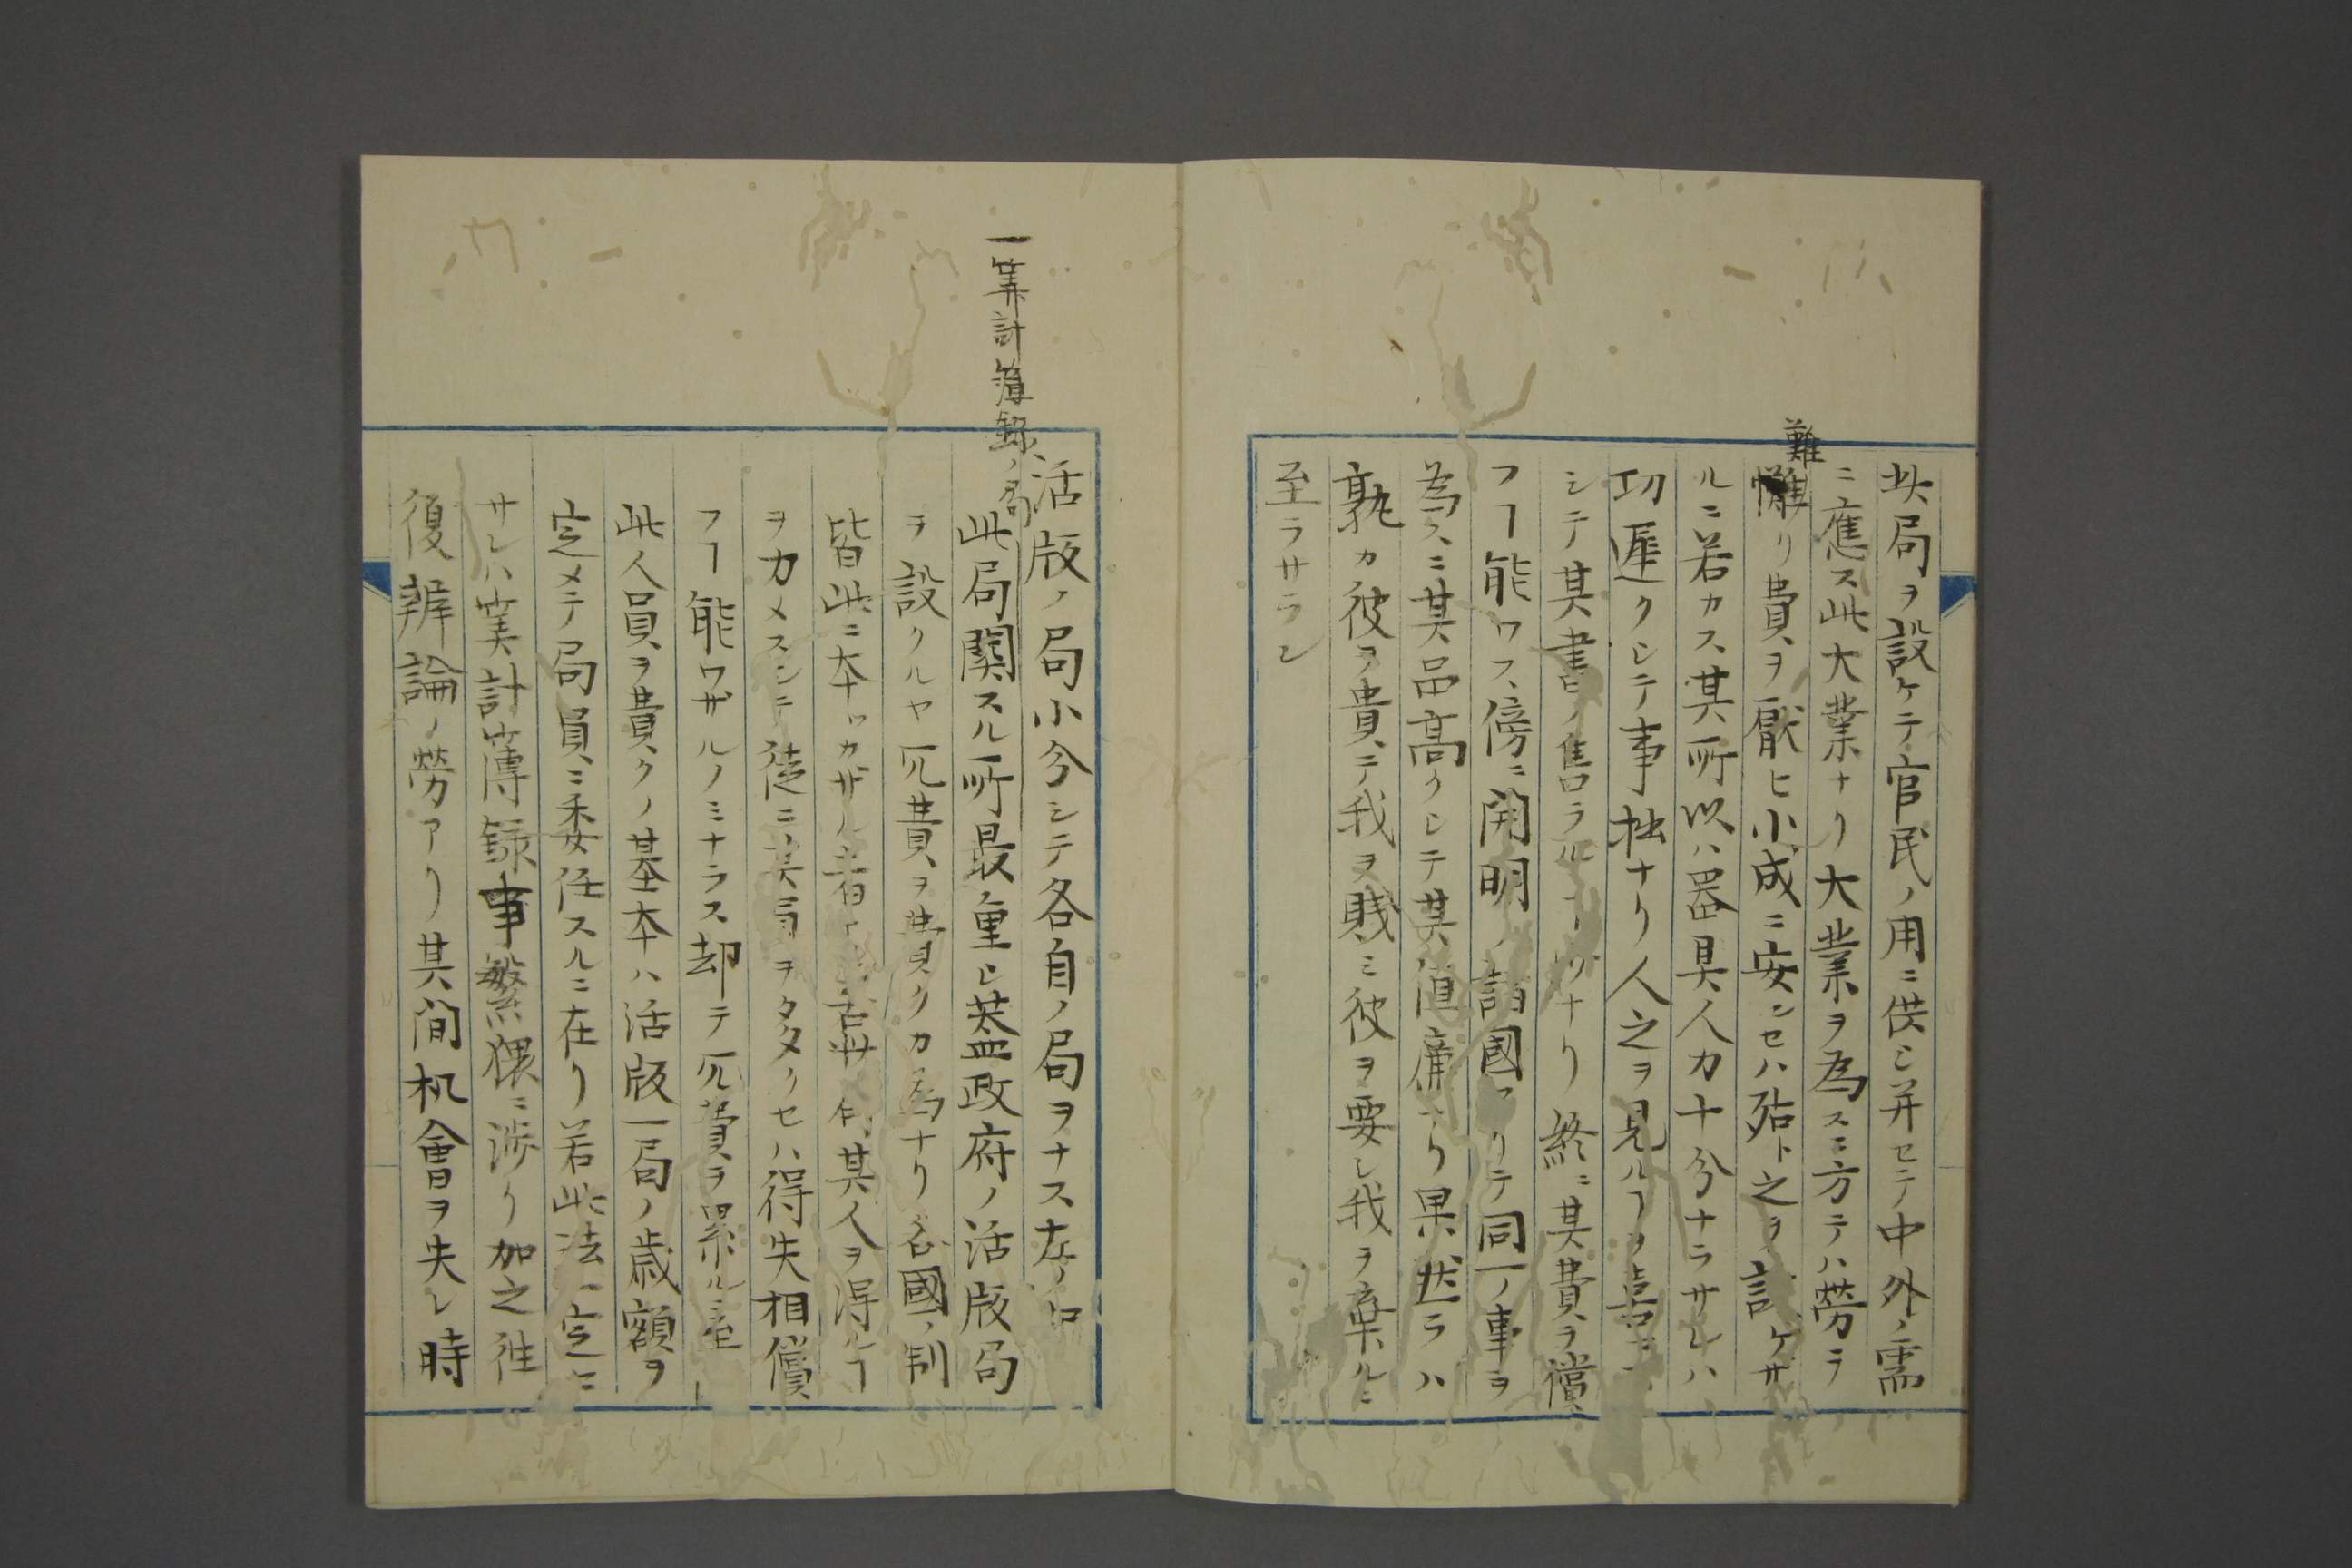 此局ヲ設ケテ官民ノ用ニ供シ并セテ中外ノ需
ニ應ス此大業ナリ大業ヲ為スニ方テハ勞ヲ
難
憚リ費ヲ厭ヒ小成ニ安ンセハ殆ト之ヲ設ケザ
ルニ若カス其所以ハ器具人力十分ナラサレハ
功遲クシテ事拙ナリ人之ヲ見ルヿヲ喜
シテ其書ノ售ラルヿ ナリ終ニ其費ヲ償
フヿ能ワス傍ニ開明ノ諸國 リテ同一ノ事ヲ
為スニ其品高クシテ其値廉ナり果然ラハ
孰カ彼ヲ貴ニ我ヲ賎ミ彼ヲ要シ我ヲ棄ルニ
至ラサラン
活版ノ局小分シテ各自ノ局ヲナス左ノ
一筭計簿錄ノ局
此局関スル所最重シ蓋政府ノ活版局
ヲ設クルヤ冗費ヲ費クカ為ナリ各國ノ制
皆此ニ本ツカザル者 其人ヲ得ルヿ
ヲカメスシテ徒ニ其局ヲタタノセハ得失相償
フヿ能ワザルノミナラス却テ冗費ヲ累ル
此人員ヲ費クノ基本ハ活版一局ノ歳額ヲ
定メテ局員ニ委任スルニ在リ若此法一定ニ
サレハ筭計簿録事繁猥ニ渉リ加之往
復辨論ノ勞アリ其間机會ヲ失シ時